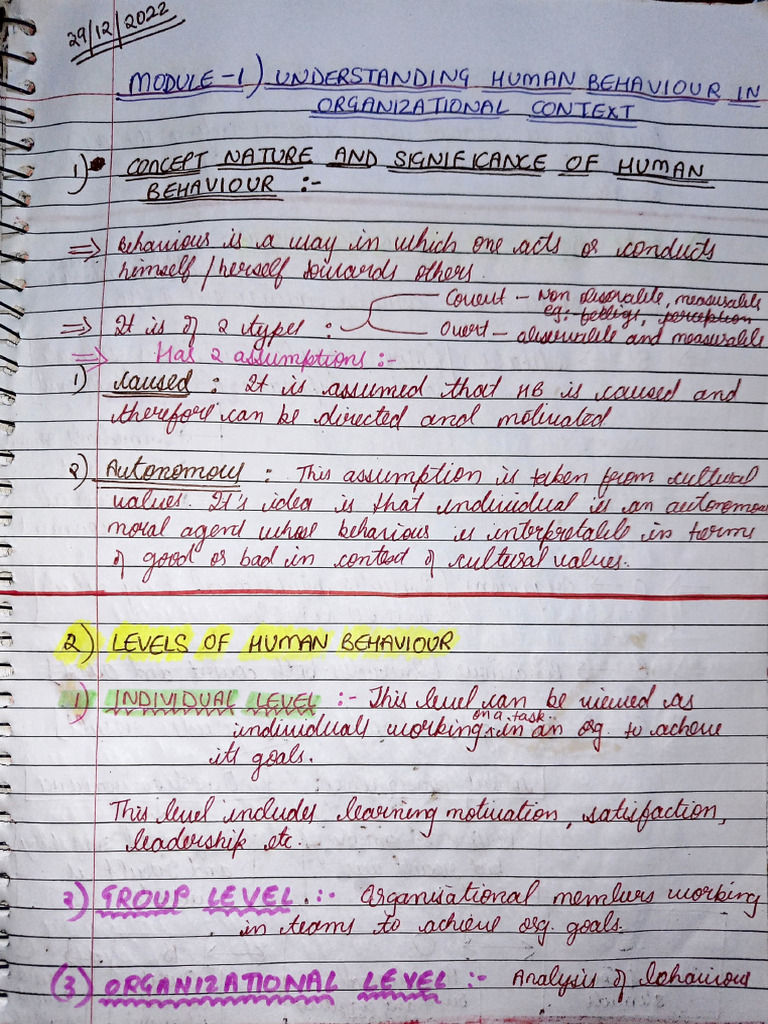 29/12/2022
MODULE-1) UNDERSTANDING HUMAN BEHAVIOUR IN
ORGANIZATIONAL CONTEXT
1) CONCEPT NATURE AND SIGNIFICANCE OF HUMAN
BEHAVIOUR :-
⇒ Behaviour is a way in which one acts or conducts
himself/herself towards others.
Covert - Non observable, measurable
eg:- feelings, perception
⇒ It is of 2 types :
Overt - observable and measurable
⇒ Has 2 assumptions :-
1) Caused : It is assumed that HB is caused and
therefore can be directed and motivated
2) Autonomous : This assumption is taken from cultural
values. It's idea is that individual is an autonomous
moral agent whose behaviour is interpretable in terms
of good or bad in context of cultural values.
2) LEVELS OF HUMAN BEHAVIOUR
1) INDIVIDUAL LEVEL :- This level can be viewed as
individuals working on a task in an org. to achieve
its goals.
This level includes learning motivation, satisfaction,
leadership etc.
2) GROUP LEVEL :- Organisational members working
in teams to achieve org. goals.
(3) ORGANIZATIONAL LEVEL :- Analysis of behaviour